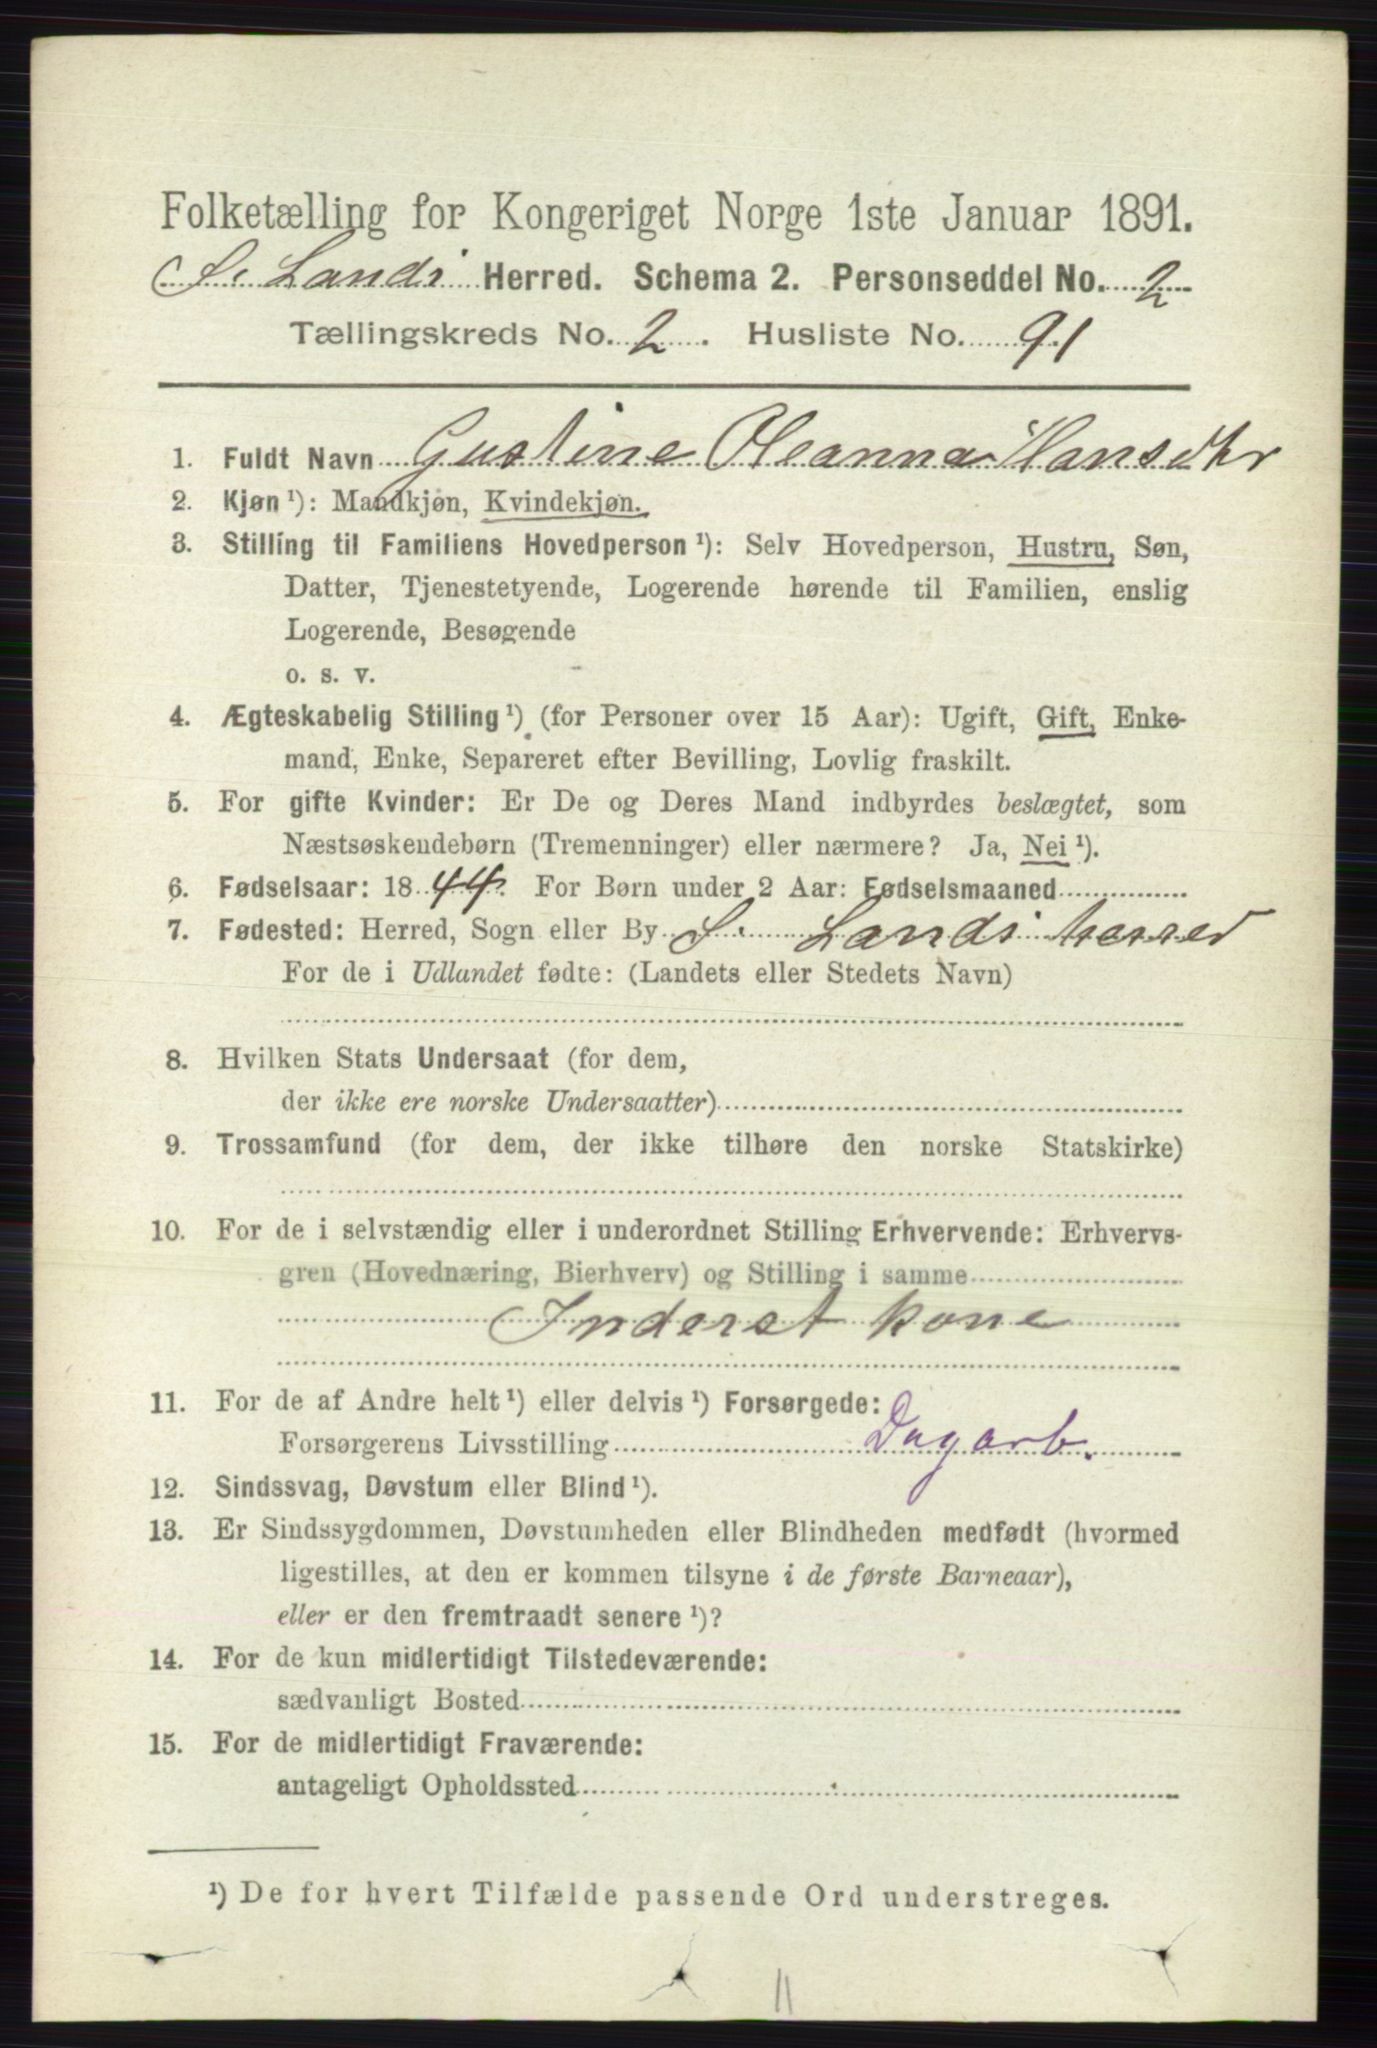 Folketælling for Kongeriget Norge 1ste Januar 1891.
S. Lands Herred. Schema 2. Personseddel No. 2
Tællingskreds No. 2. Husliste No. 91
1. Fuldt Navn Gustine Oleanna Hansdtr
2. Kjøn ¹): Mandkjøn, Kvindekjøn.
3. Stilling til Familiens Hovedperson ¹): Selv Hovedperson, Hustru, Søn,
Datter, Tjenestetyende, Logerende hørende til Familien, enslig
Logerende, Besøgende
o. s. v.
4. Ægteskabelig Stilling ¹) (for Personer over 15 Aar): Ugift, Gift, Enke-
mand, Enke, Separeret efter Bevilling, Lovlig fraskilt.
5. For gifte Kvinder: Er De og Deres Mand indbyrdes beslægtet, som
Næstsøskendebørn (Tremenninger) eller nærmere? Ja, Nei ¹).
6. Fødselsaar: 1844. For Børn under 2 Aar: Fødselsmaaned
7. Fødested: Herred, Sogn eller By S. Lands herred
For de i Udlandet fødte: (Landets eller Stedets Navn)
8. Hvilken Stats Undersaat (for dem,
der ikke ere norske Undersaatter)
9. Trossamfund (for dem, der ikke tilhøre den norske Statskirke)
10. For de i selvstændig eller i underordnet Stilling Erhvervende: Erhvervs-
gren (Hovednæring, Bierhverv) og Stilling i samme
Inderst kone
11. For de af Andre helt ¹) eller delvis ¹) Forsørgede:
Forsørgerens Livsstilling Dagarb.
12. Sindssvag, Døvstum eller Blind ¹).
13. Er Sindssygdommen, Døvstumheden eller Blindheden medfødt (hvormed
ligestilles, at den er kommen tilsyne i de første Barneaar),
eller er den fremtraadt senere ¹)?
14. For de kun midlertidigt Tilstedeværende:
sædvanligt Bosted
15. For de midlertidigt Fraværende:
antageligt Opholdssted
¹) De for hvert Tilfælde passende Ord understreges.
11